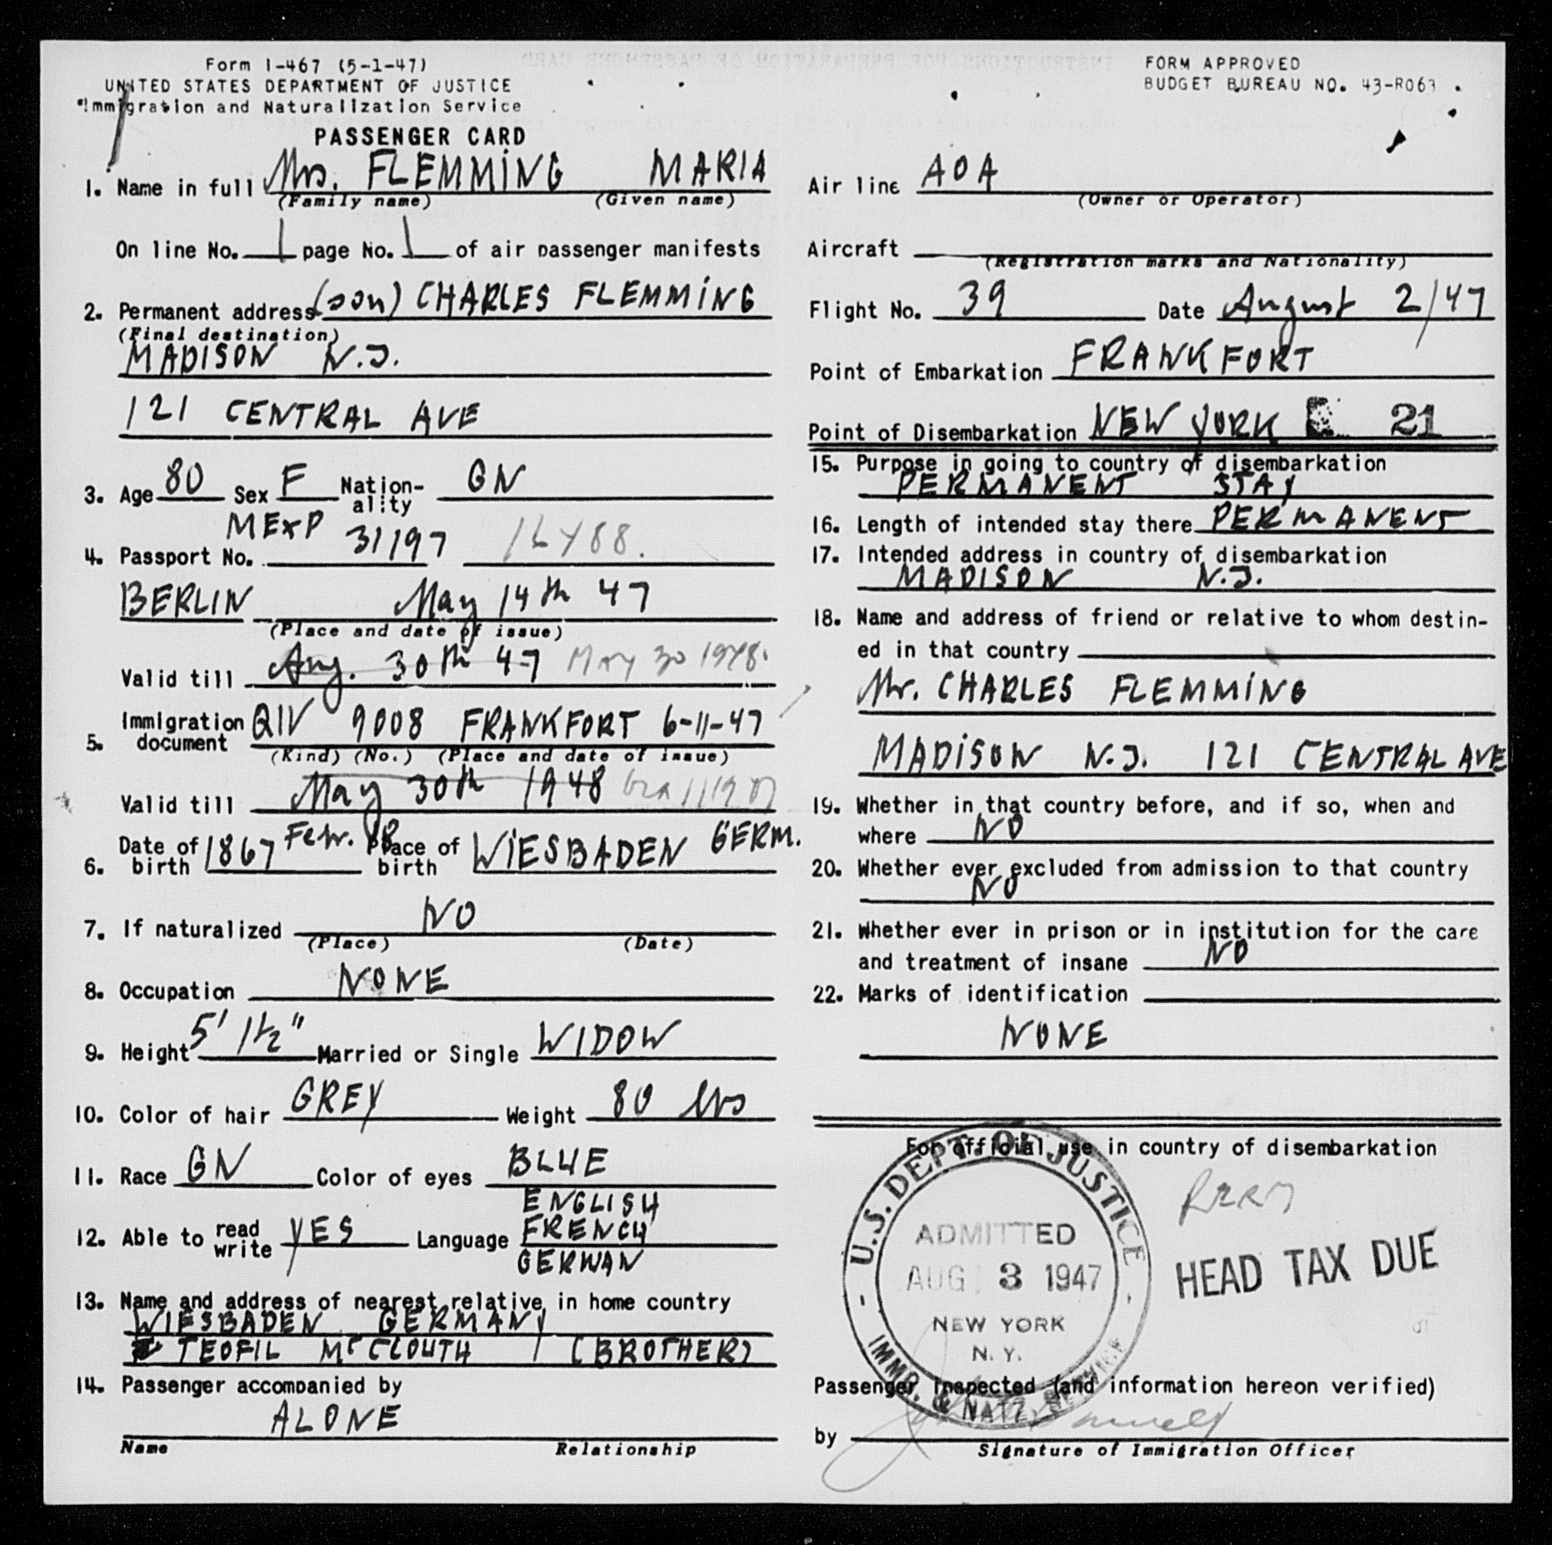 Form I-467 (5-1-47)
UNITED STATES DEPARTMENT OF JUSTICE
Immigration and Naturalization Service
PASSENGER CARD
1. Name in full Mrs. FLEMMING MARIA
(Family name) (Given name)
On line No. 1 page No. 1 of air passenger manifests
2. Permanent address (son) CHARLES FLEMMING
(Final destination)
MADISON N.J.
121 CENTRAL AVE
3. Age 80 Sex F Nation-ality GN
MExP 31197
4. Passport No.
BERLIN May 14th 47
(Place and date of issue)
Valid till Aug. 30th 47 MAY 30 1948.
5. Immigration document QIV 9008 FRANKFORT 6-11-47
(Kind) (No.) (Place and date of issue)
Valid till May 30th 1948
6. Date of birth 1867 Febr. Place of birth WIESBADEN GERM.
7. If naturalized NO
(Place) (Date)
8. Occupation NONE
9. Height 5' 1½" Married or Single WIDOW
10. Color of hair GREY Weight 80 lbs
11. Race GN Color of eyes BLUE
12. Able to read write YES Language ENGLISH FRENCH GERMAN
13. Name and address of nearest relative in home country
WIESBADEN GERMANY
TEOFIL McCLOUTH (BROTHER)
14. Passenger accompanied by
ALONE
Name Relationship
FORM APPROVED
BUDGET BUREAU NO. 43-R063
Air line AOA
(Owner or Operator)
Aircraft
(Registration marks and Nationality)
Flight No. 39 Date August 2/47
Point of Embarkation FRANKFORT
Point of Disembarkation NEW YORK 21
15. Purpose in going to country of disembarkation
PERMANENT STAY
16. Length of intended stay there PERMANENT
17. Intended address in country of disembarkation
MADISON N.J.
18. Name and address of friend or relative to whom destin-
ed in that country
Mr. CHARLES FLEMMING
MADISON N.J. 121 CENTRAL AVE
19. Whether in that country before, and if so, when and
where NO
20. Whether ever excluded from admission to that country
NO
21. Whether ever in prison or in institution for the care
and treatment of insane NO
22. Marks of identification
NONE
For official use in country of disembarkation
U.S. DEPT. OF JUSTICE
ADMITTED
AUG 3 1947
NEW YORK
N. Y.
IMMG. & NATZ. SERVICE
HEAD TAX DUE
Passenger Inspected (and information hereon verified)
by
Signature of Immigration Officer